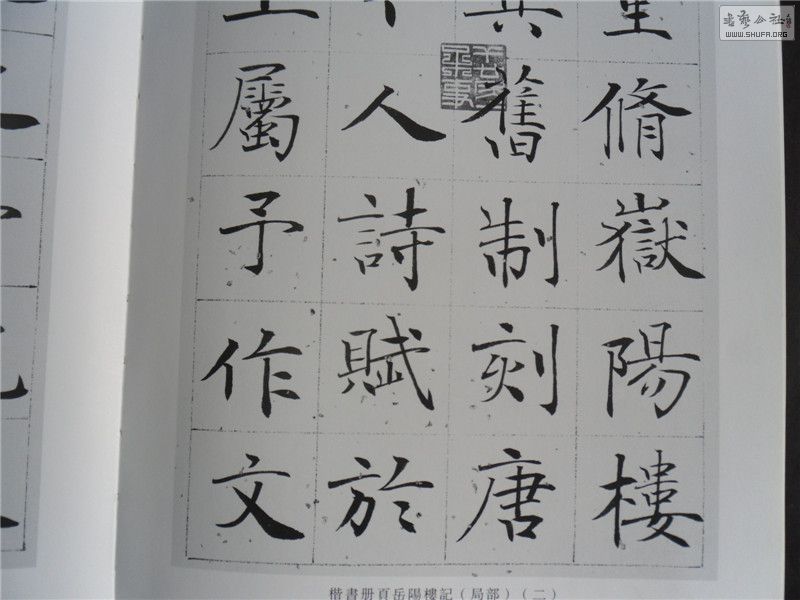 重脩嶽陽樓
其舊制刻唐
人詩賦於
屬予作文
楷書册頁岳陽樓記（局部）（二）
書藝公社
WWW.SHUFA.ORG